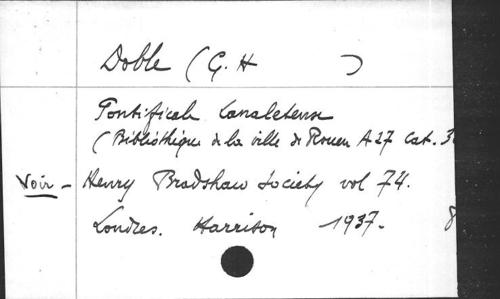 Doble (G. H )
Pontificale Lanaletense
(Bibliothèque de la ville de Rouen A 27 Cat. 3
Voir - Henry Bradshaw Society vol 74.
Londres. Harrison 1937. 8